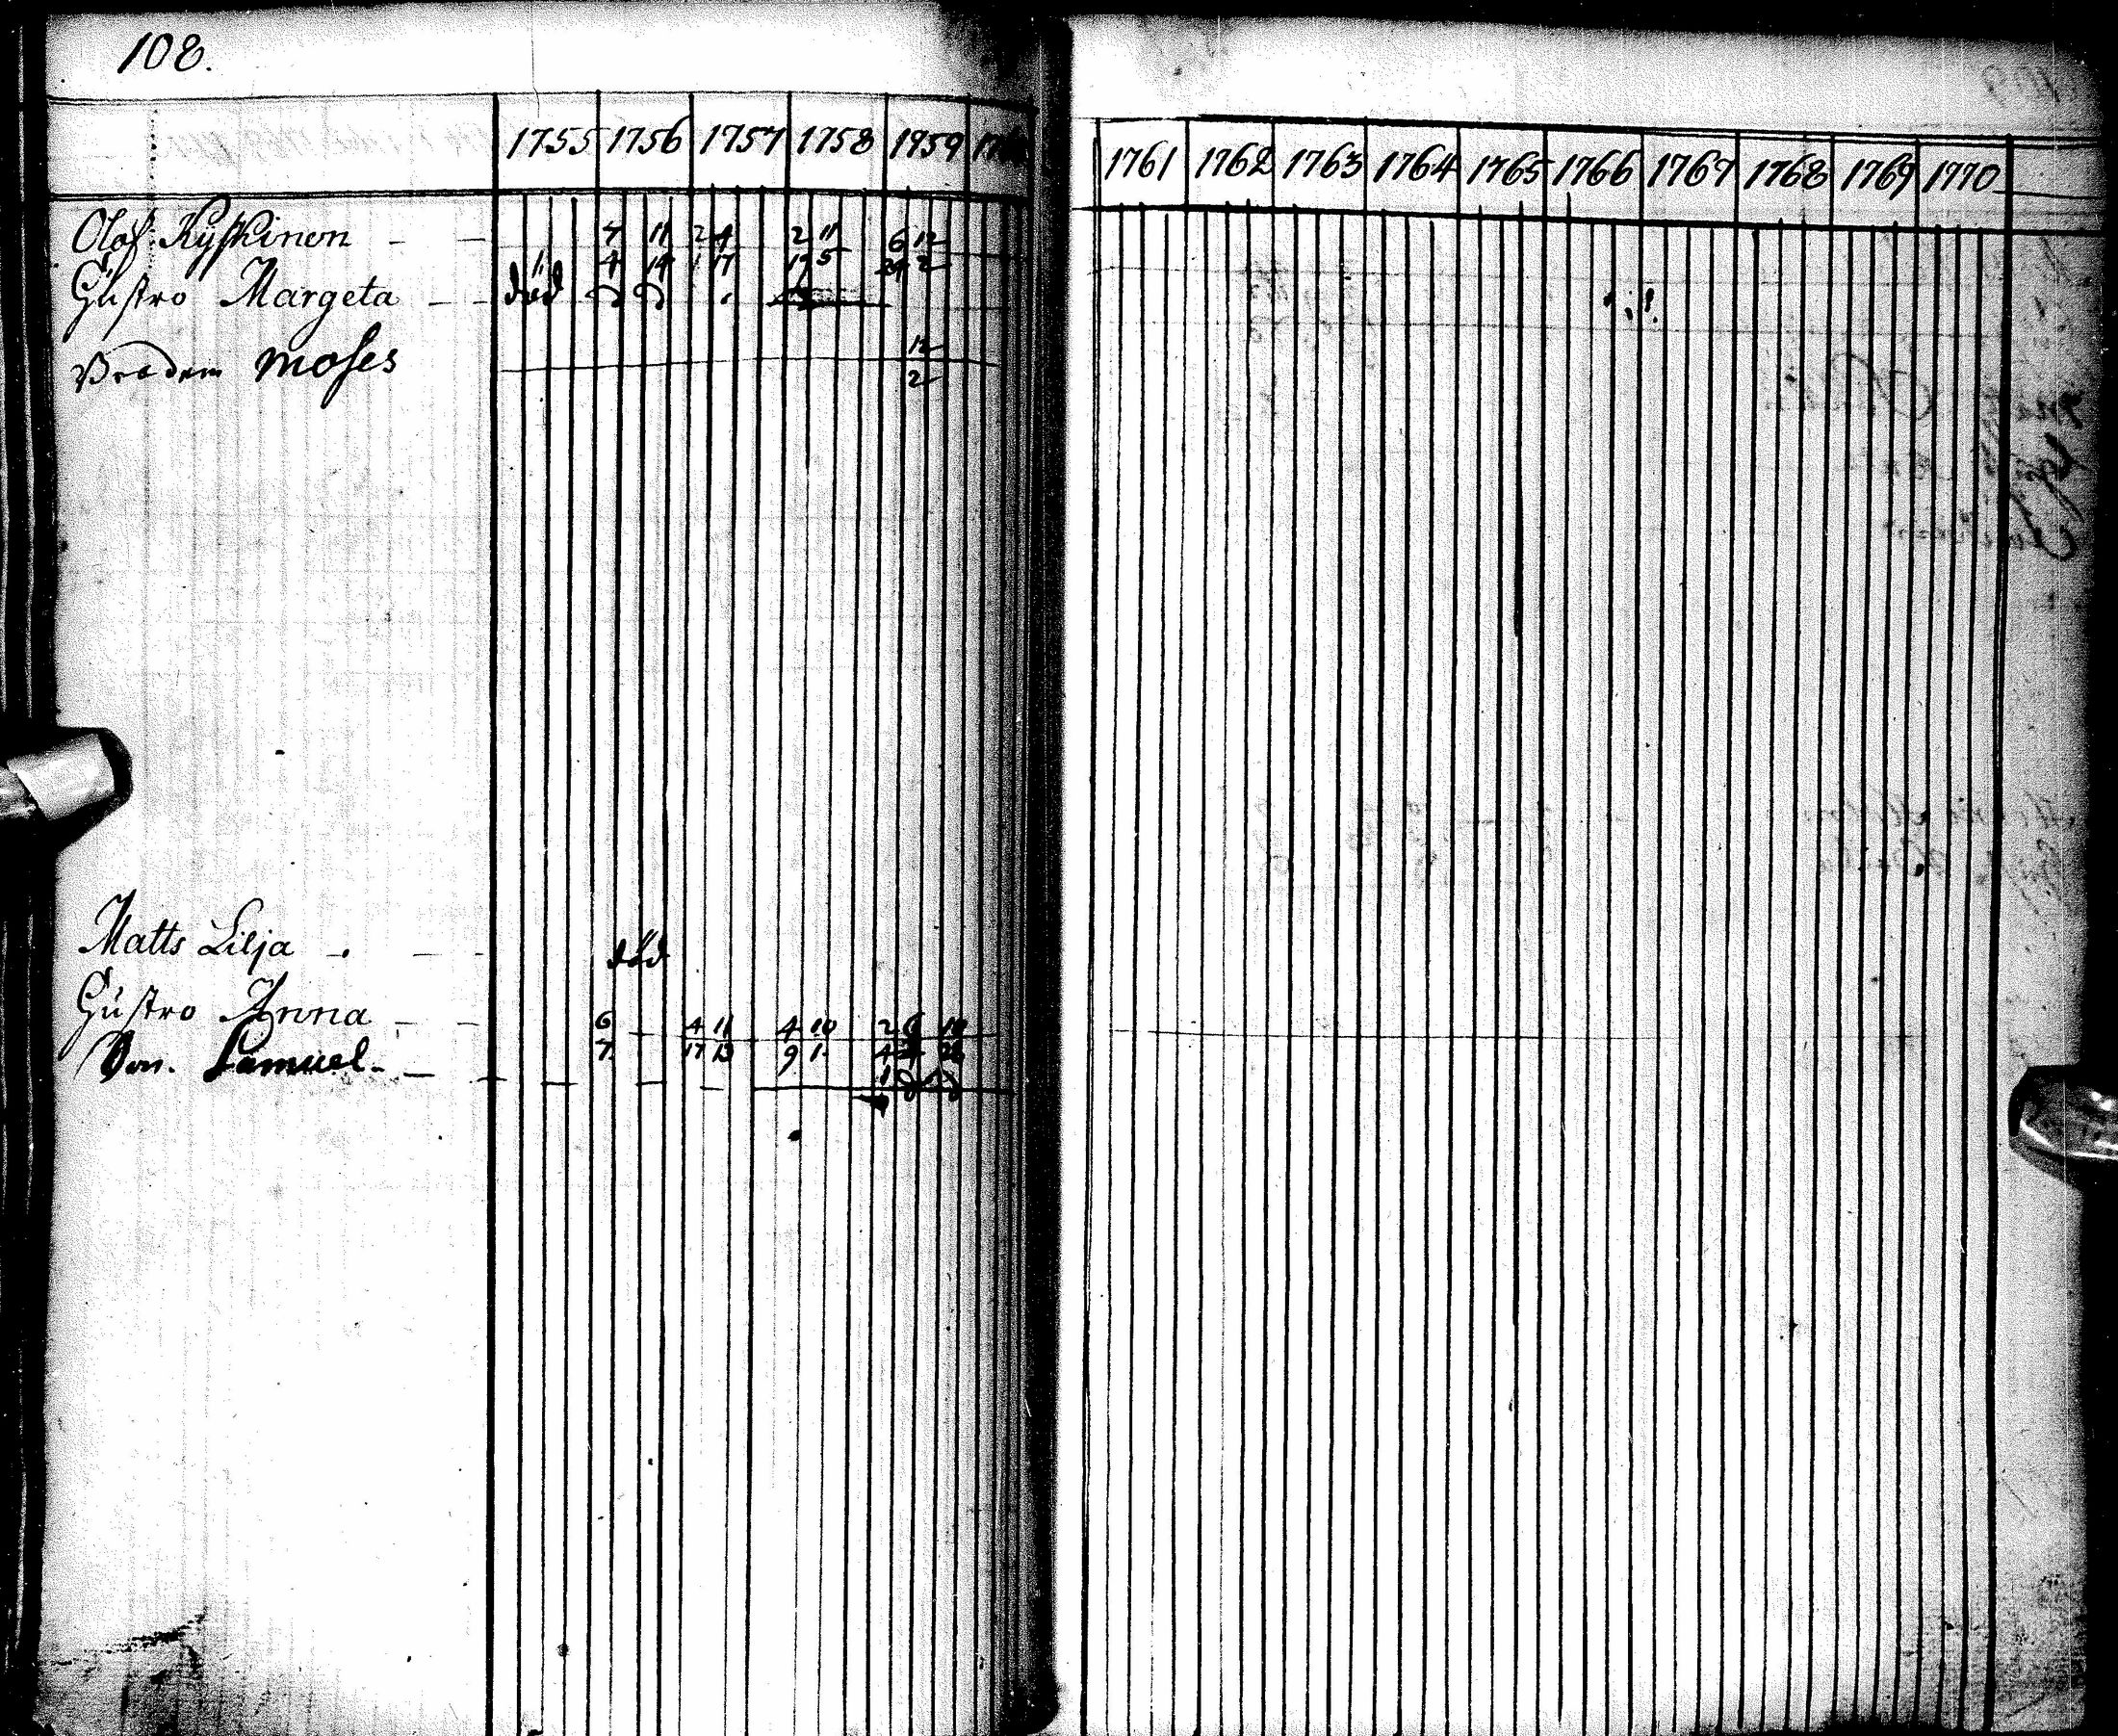 108.
1755 1756 1757 1758 1959 1761 1762 1763 1764 1765 1766 1767 1768 1769 1770
Olof Kyſkinen - - 4 11 2 4 2 11 6 12
4 14 1 17 19 5 24 2
Hüſtro Margeta - - död
Brodern Moſes 12
2
Matts Lilja - . - - död
Hüſtro Anna - - 6 4 11 4 10 2 6 10
Son. Samuel. - 7 17 13 9 1. 4 26